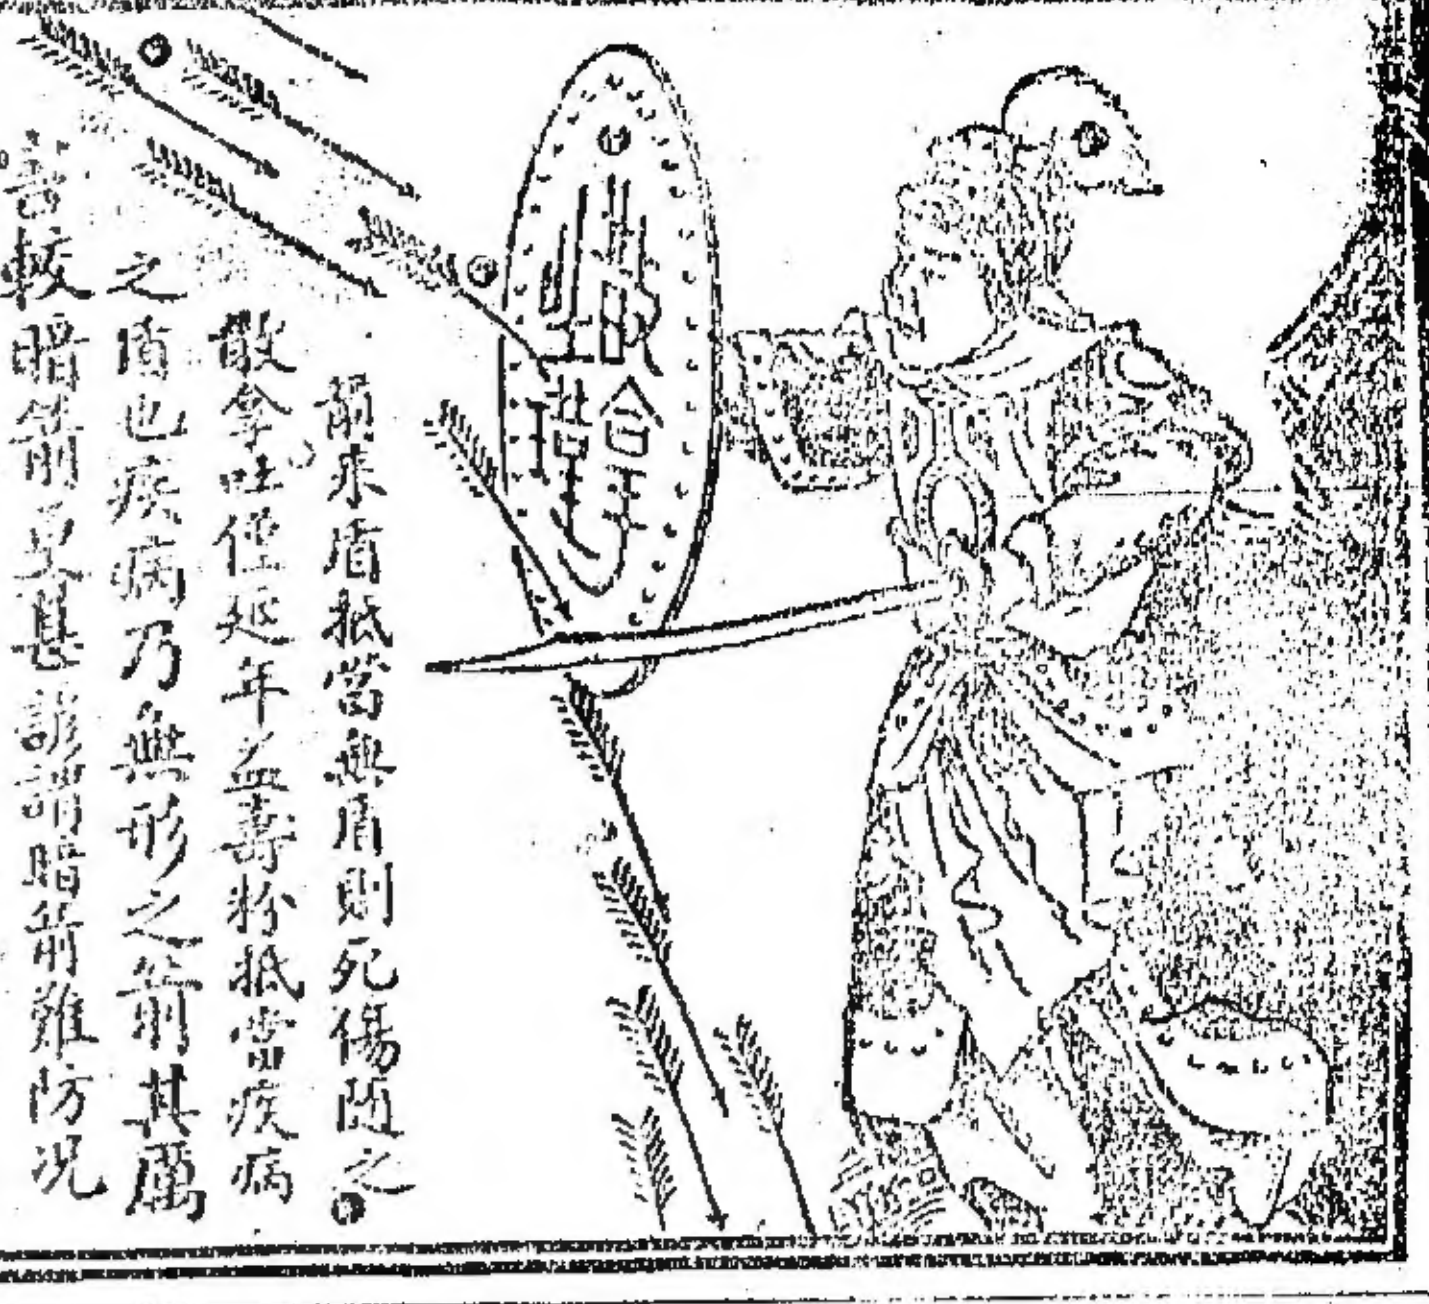 散拿
吐瑾
箭來盾抵當無盾則死傷隨之
散拿吐瑾延年益壽粉抵當疾病
之盾也疾病乃無形之箭其厲
害較暗箭更甚諺謂暗箭難防况